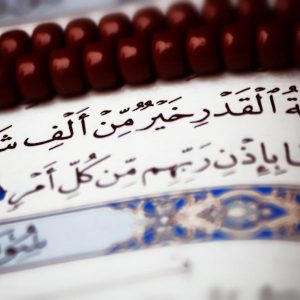 ٱلۡقَدۡرِ خَيۡرٞ مِّنۡ أَلۡفِ
بِإِذۡنِ رَبِّهِم مِّن كُلِّ أَمۡرٖ